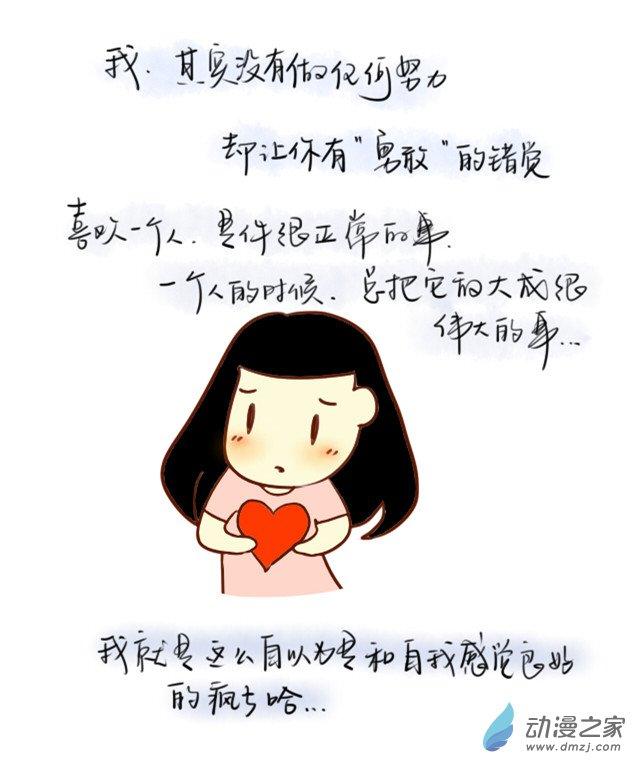 我.其实没有做任何努力
却让你有"勇敢"的错觉
喜欢一个人.是件很正常的事.
一个人的时候.总把它放大成很
伟大的事...
我就是这么自以为是和自我感觉良好
的疯子哈...
动漫之家
www.dmzj.com